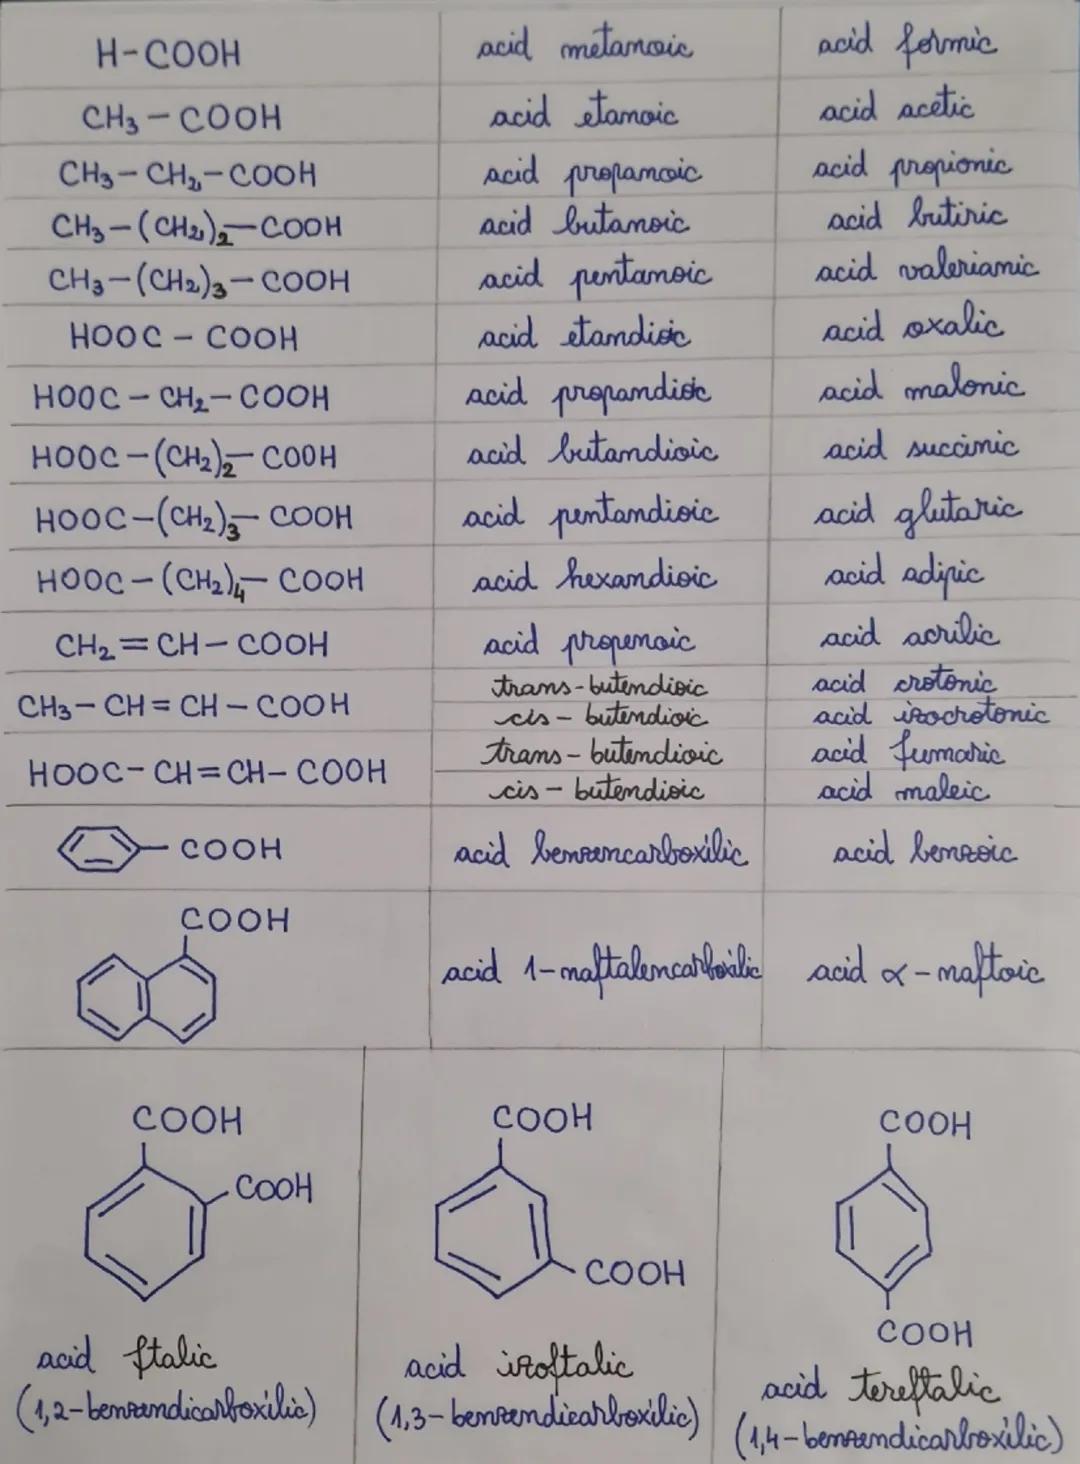 H-COOH acid metanoic acid formic
CH3-COOH acid etanoic acid acetic
CH3-CH2-COOH acid propanoic acid propionic
CH3-(CH2)2-COOH acid butanoic acid butiric
CH3-(CH2)3-COOH acid pentanoic acid valerianic
HOOC-COOH acid etandioic acid oxalic
HOOC-CH2-COOH acid propandioic acid malonic
HOOC-(CH2)2-COOH acid butandioic acid succinic
HOOC-(CH2)3-COOH acid pentandioic acid glutaric
HOOC-(CH2)4-COOH acid hexandioic acid adipic
CH2=CH-COOH acid propenoic acid acrilic
trans-butendioic acid crotonic
CH3-CH=CH-COOH
cis-butendioic acid izocrotonic
trans-butendioic acid fumaric
HOOC-CH=CH-COOH
cis-butendioic acid maleic
COOH acid benzencarboxilic acid benzoic
COOH
acid 1-naftalencarboxilic acid α-naftoic
COOH COOH COOH
COOH
COOH
COOH
acid ftalic acid izoftalic acid tereftalic
(1,2-benzendicarboxilic) (1,3-benzendicarboxilic) (1,4-benzendicarboxilic)